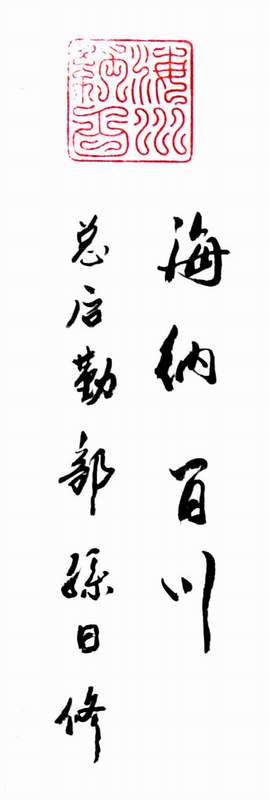 海纳百川
总后勤部孫日修